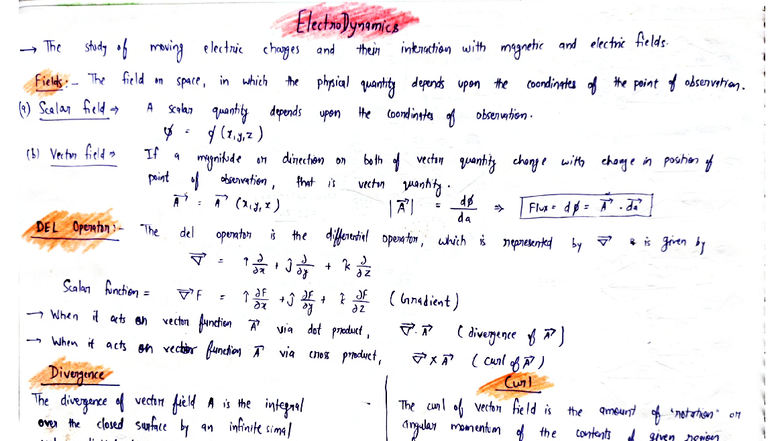 ElectroDynamics
→ The study of moving electric charges and their interaction with magnetic and electric fields.
Fields:- The field or space, in which the physical quantity depends upon the coordinates of the point of observation.
(a) Scalar field ⇒ A scalar quantity depends upon the coordinates of observation.
ϕ = ϕ(x,y,z)
(b) Vector field ⇒ If a magnitude or direction or both of vector quantity change with change in position of
point of observation, that is vector quantity.
A⃗ = A⃗ (x,y,z) |A⃗| = dϕ/da ⇒ Flux = dϕ = A⃗ · da⃗
DEL Operator:- The del operator is the differential operator, which is represented by ∇⃗ & is given by
∇⃗ = î ∂/∂x + ĵ ∂/∂y + k̂ ∂/∂z
Scalar function = ∇⃗F = î ∂F/∂x + ĵ ∂F/∂y + k̂ ∂F/∂z (Gradient)
→ When it acts on vector function A⃗ via dot product, ∇⃗·A⃗ (divergence of A⃗)
→ When it acts on vector function A⃗ via cross product, ∇⃗×A⃗ (curl of A⃗)
Divergence
The divergence of vector field A is the integral
over the closed surface by an infinite simal
Curl
The curl of vector field is the amount of "rotation" or
angular momentum of the contents of given region